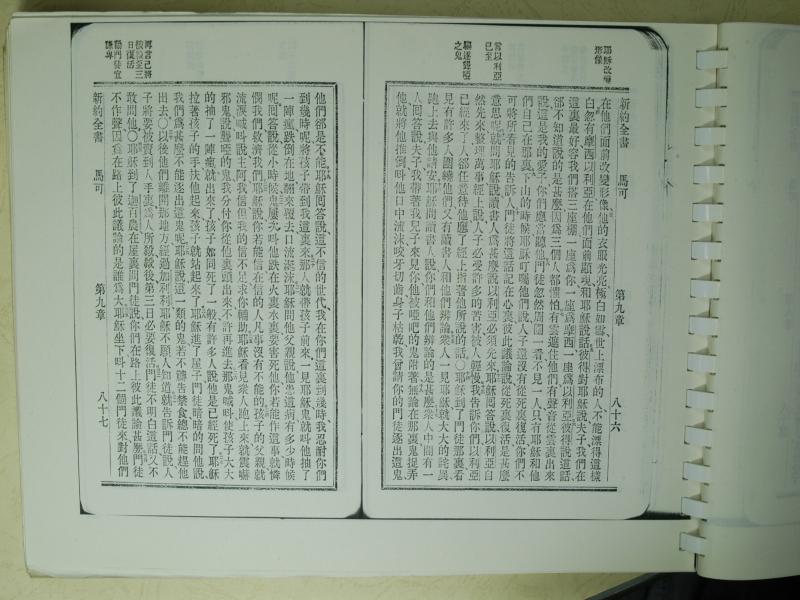 耶穌改變
形像
當以利亞
已至
驅逐聾啞
之鬼
新約全書　馬可　第九章　八十六
在他們面前改變形像他的衣服光亮極白如雪世上漂布的人不能漂得這樣
白忽有摩西以利亞在他們面前顯現和耶穌說話彼得對耶穌說夫子我們在
這裏最好容我們搭三座棚一座爲你一座爲摩西一座爲以利亞彼得說這話
卻不知道說的是甚麼因爲三個人都懼怕有雲遮住他們有聲音從雲裏出來
說這是我的愛子你們應當聽他門徒忽然周圍一看不見一人只有耶穌和他
們自己在那裏下山的時候耶穌叮囑他們說人子還沒有從死裏復活你們不
可將所看見的告訴人門徒將這話記在心裏彼此議論說從死裏復活是甚麼
意思呢就問耶穌說讀書人爲甚麼說以利亞必須先來耶穌回答說以利亞自
然先來整理萬事經上說人子必受許多的苦害被人輕慢我告訴你們以利亞
已經來了人卻任意待他應了經上指著他所說的話〇耶穌到了門徒那裏看
見有許多人圍繞他們又有讀書人和他們辨論衆人一見耶穌就大大的詫異
跑上去與他請安耶穌問讀書人說你們和他們辨論的是甚麼衆人中間有一
人回答說夫子我帶著我兒子來見你他被啞吧的鬼附著無論在那裏鬼捉弄
他就將他推倒叫他口中流沫咬牙切齒身子枯乾我曾請你的門徒逐出這鬼
再言己將
被殺至三
日復活
勸門徒宜
謙卑
新約全書　馬可　第九章　八十七
他們卻是不能耶穌回答說這不信的世代我在你們這裏到幾時我忍耐你們
到幾時呢將孩子帶到我這裏來那人就帶孩子前來一見耶穌鬼就叫他抽了
一陣瘋跌倒在地翻來覆去口流涎沫耶穌問他父親說他患這病有多少時候
呢回答說從小時候鬼屢次叫他跌在火裏水裏要害死他你若能作這事就憐
憫我們救濟我們耶穌說你若能信在信的人凡事沒有不能的孩子的父親就
流淚喊叫說主阿我信但我的信不足求你輔助耶穌看見衆人跑上來就震嚇
邪鬼說聾啞的鬼我分付你從他裏頭出來不許再進去那鬼喊叫使孩子大大
的抽了一陣瘋就出來了孩子如同死了一般有許多人說他是已經死了耶穌
拉著孩子的手扶他起來孩子就站起來了耶穌進了屋子門徒暗暗的問他說
我們爲甚麼不能逐出這鬼呢耶穌說這一類的鬼若不禱告禁食總不能趕他
出去〇以後他們離開那地方經過加利利耶穌不願人知道就告訴門徒說人
子將要被賣到人手裏爲人所殺殺後第三日必要復活門徒不明白這話又不
敢問他〇耶穌到了迦百農在屋裏問門徒說你們在路上彼此議論甚麼門徒
不作聲因爲在路上彼此議論的是誰爲大耶穌坐下叫十二個門徒來對他們